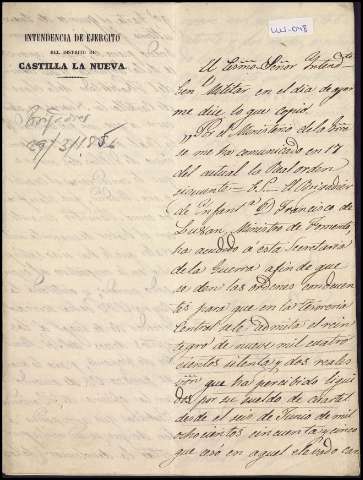 INTENDENCIA DE EJERCITO
DEL DISTRITO DE
CASTILLA LA NUEVA.
29/3/1856
El Ecsmo. Señor Intendte
Gen.l Militar en el dia de ayer
me dice lo que copio.
"Por el Ministerio de la Grra
se me ha comunicado en 17
del actual la Real orden
siguiente = E.S. = El Brigadier
de Infant.a D. Francisco de
Luxan, Ministro de Fomento,
ha acudido á esta Secretaria
de la Guerra afin de que
se den las ordenes convenientes
para que en la tesoreria
Central se le admita el rein
tegro de nueve mil cuatro
cientos setenta y dos reales
que ha percibido liqui
dos por su sueldo de cuartel
desde el seis de Junio de mil
ochocientos cincuenta y cinco
que cesó en aquel elevado car